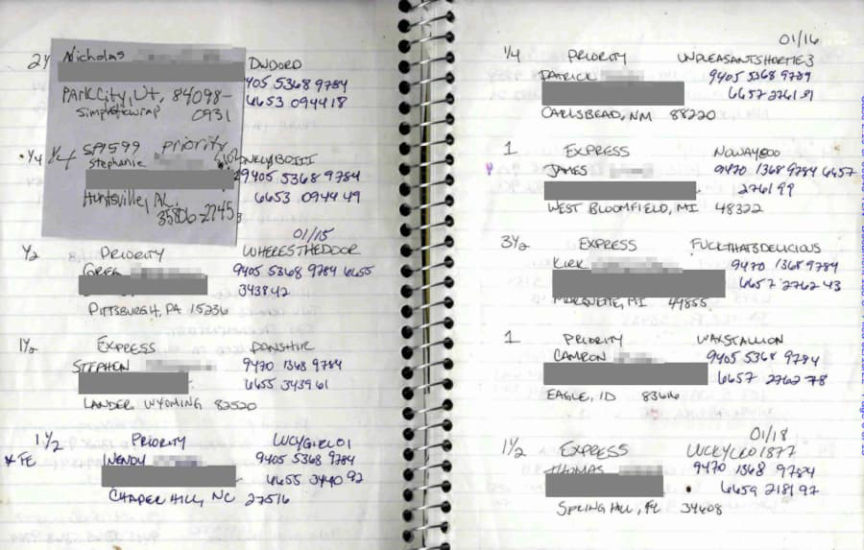 2½ Nicholas
DNDORD
9405 5368 9784
Park City, Ut, 84098-
6653 094418
0931
¼ ¼ SP1599 priority
Stephanie
9405 5368 9784
Huntsville, AL
6653 0944 49
35806-2745
01/15
½ PRIORITY WHERESTHEDOOR
GREG 9405 5368 9784 6655
343842
PITTSBURGH, PA 15236
1½ EXPRESS DANSHIR
STEPHEN 9470 1368 9784
6655 343961
LANDER WYOMING 82520
1½ PRIORITY LUCYGIRL01
* FE WENDY 9405 5368 9784
6655 3440 92
CHAPEL HILL, NC 27516
01/16
¼ PRIORITY UNPLEASANTSHORTIE3
PATRICK 9405 5368 9784
6657 2761 81
CARLSBAD, NM 88220
1 EXPRESS NOWAY500
JAMES 9470 1368 9784 6657
2761 99
WEST BLOOMFIELD, MI 48322
3½ EXPRESS FUCKTHATSDELICIOUS
KIRK 9470 1368 9784
6657 2762 43
MARQUETTE, MI 49855
1 PRIORITY WAXSTALLION
CAMRON 9405 5368 9784
6657 2762 78
EAGLE, ID 83616
01/18
1½ EXPRESS LUCKYCLO1877
THOMAS 9470 1368 9784
6659 2181 97
SPRING HILL, FL 34608